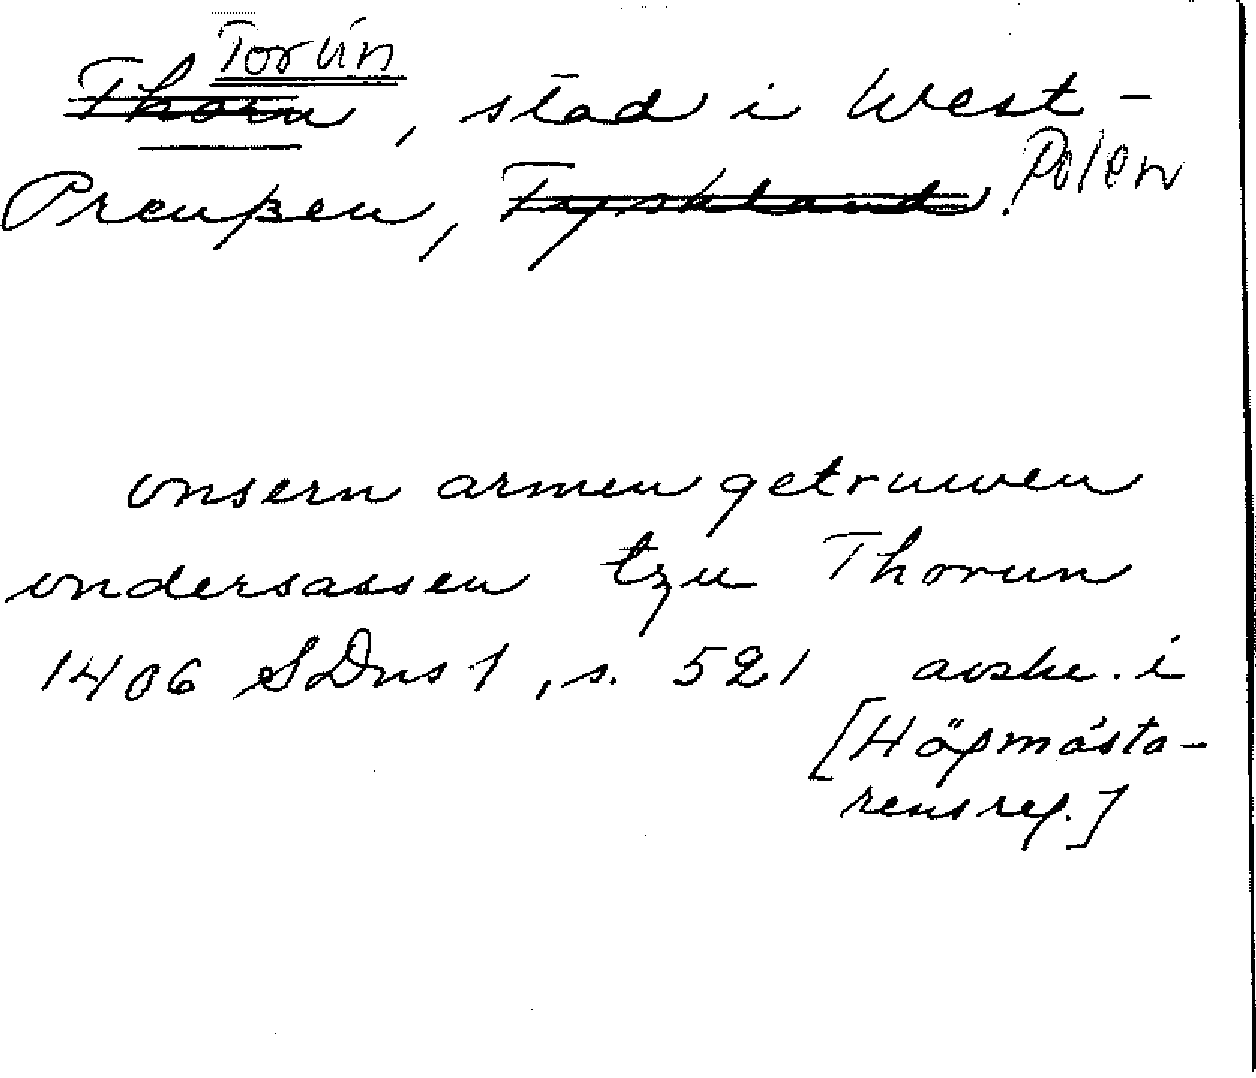 Torún
Thorn, stad i West-
Preußen, Tyskland. Polen
vnsern armen getruwen
vndersassen tzu Thorun
1406 SDns 1, s. 521 avskr. i
[Högmästa-
rens reg.]